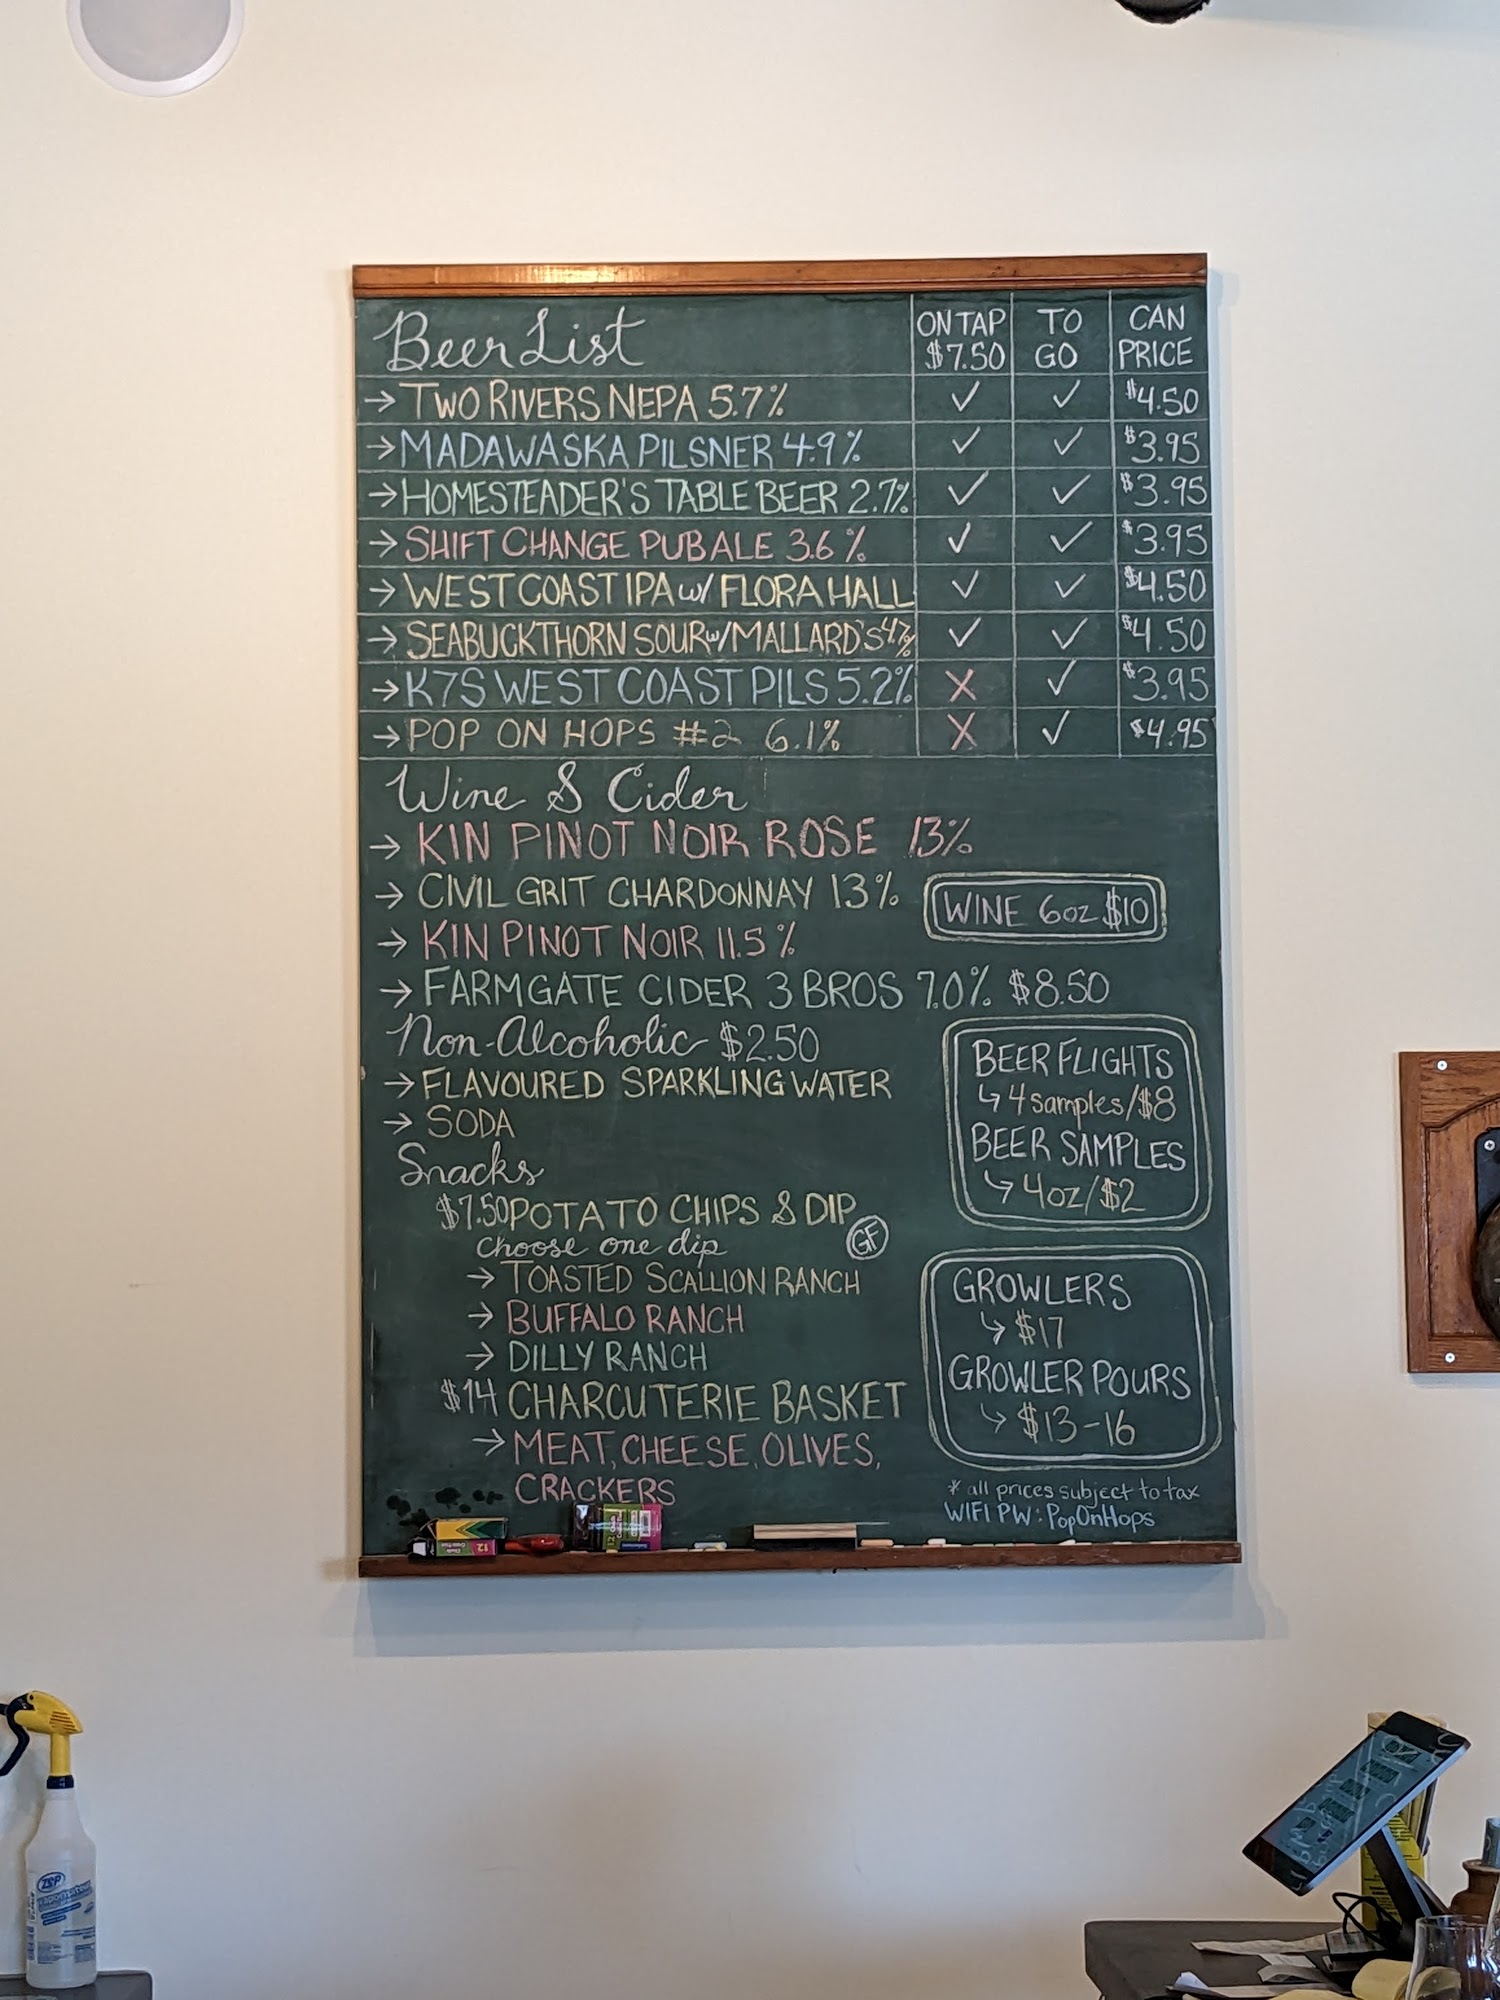 Beer List ON TAP $7.50 TO GO CAN PRICE
→ TWO RIVERS NEPA 5.7% ✓ ✓ $4.50
→ MADAWASKA PILSNER 4.9% ✓ ✓ $3.95
→ HOMESTEADER'S TABLE BEER 2.7% ✓ ✓ $3.95
→ SHIFT CHANGE PUB ALE 3.6% ✓ ✓ $3.95
→ WEST COAST IPA w/ FLORA HALL ✓ ✓ $4.50
→ SEABUCKTHORN SOUR w/ MALLARD'S 4.7% ✓ ✓ $4.50
→ K7S WEST COAST PILS 5.2% X ✓ $3.95
→ POP ON HOPS #2 6.1% X ✓ $4.95
Wine & Cider
→ KIN PINOT NOIR ROSE 13%
→ CIVIL GRIT CHARDONNAY 13%
WINE 6oz $10
→ KIN PINOT NOIR 11.5%
→ FARMGATE CIDER 3 BROS 7.0% $8.50
Non-Alcoholic $2.50
→ FLAVOURED SPARKLING WATER
→ SODA
BEER FLIGHTS
↳ 4 samples/$8
BEER SAMPLES
↳ 4oz/$2
Snacks
$7.50 POTATO CHIPS & DIP
choose one dip GF
→ TOASTED SCALLION RANCH
→ BUFFALO RANCH
→ DILLY RANCH
$14 CHARCUTERIE BASKET
→ MEAT, CHEESE, OLIVES,
CRACKERS
GROWLERS
↳ $17
GROWLER POURS
↳ $13-16
* all prices subject to tax
WIFI PW: PopOnHops
12
ZEP